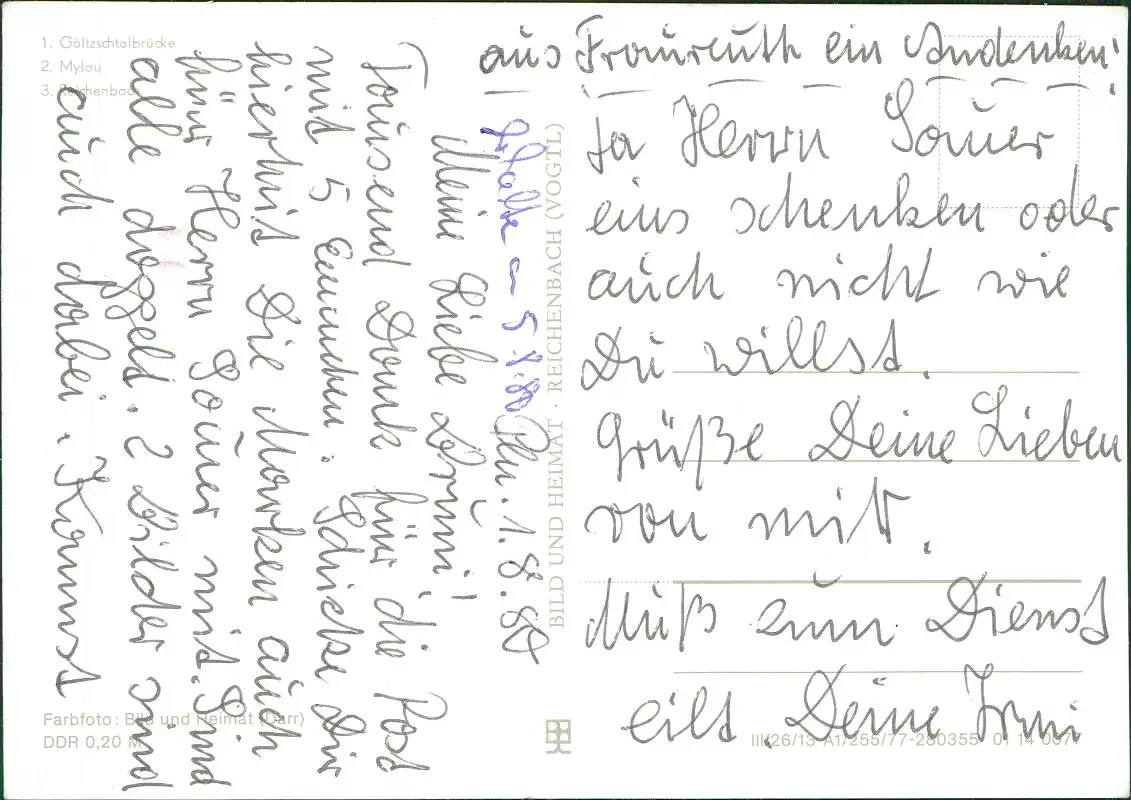 1. Göltzschtalbrücke
2. Mylau
3. Reichenbach
1.8.80
Meine Liebe
Tausend Dank für die Post
mit 5 Schicke Dir
hiermit Die Marken auch
für Herrn Sauer mit. Sind
alle doppelt. 2 Bilder sind
auch dabei. Kannst
aus Fraureuth ein Andenken!
ja Herrn Sauer
eins schenken oder
auch nicht wie
Du willst.
Grüße Deine Lieben
von mir.
Muß zum Dienst
eilt. Deine Irmi
BILD UND HEIMAT · REICHENBACH (VOGTL)
Farbfoto: Bild und Heimat (Darr)
DDR 0,20 M
III/26/13 A1/255/77-280355 01 14 0077